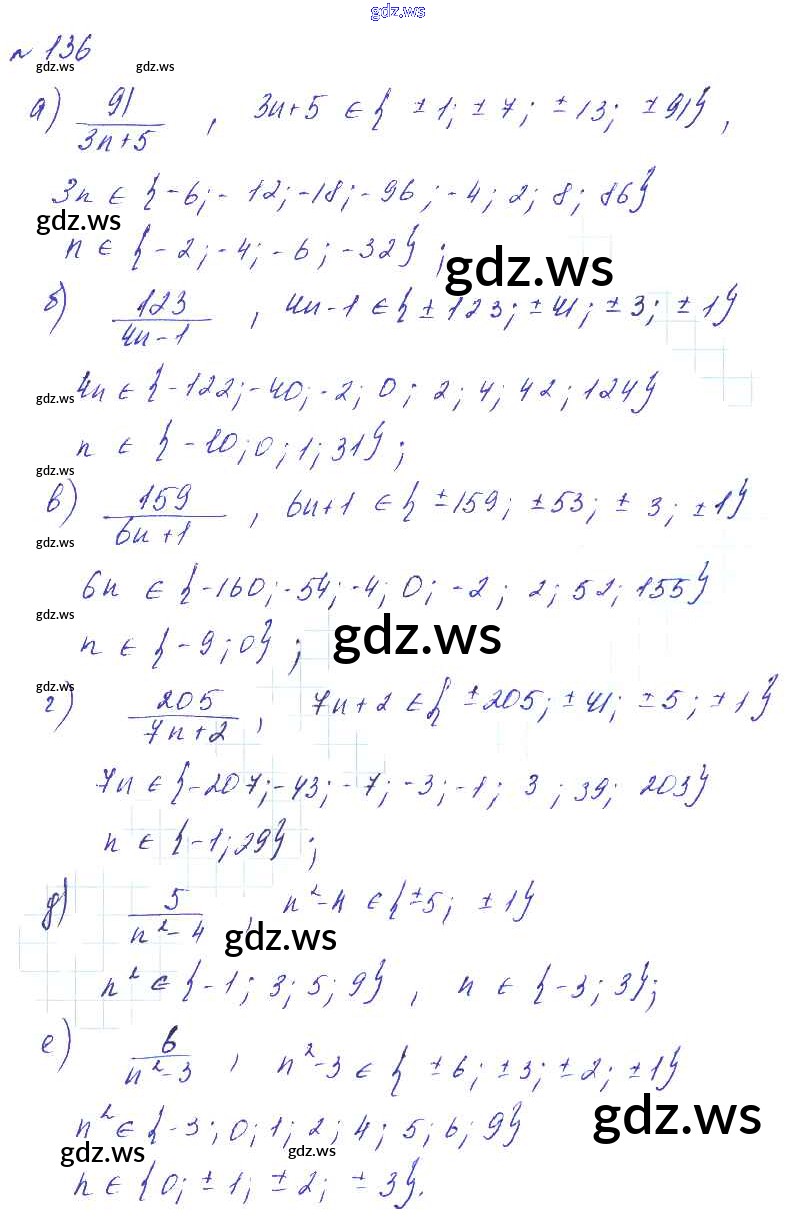 gdz.ws
№ 136
gdz.ws gdz.ws
а) 91/(3n+5) , 3n+5 ∈ { ±1; ±7; ±13; ±91} ,
3n ∈ {-6; -12; -18; -96; -4; 2; 8; 86}
gdz.ws
n ∈ {-2; -4; -6; -32} ;
gdz.ws
б) 123/(4n-1) , 4n-1 ∈ { ±123; ±41; ±3; ±1}
4n ∈ {-122; -40; -2; 0; 2; 4; 42; 124}
gdz.ws
n ∈ {-10; 0; 1; 31} ;
gdz.ws
в) 159/(6n+1) , 6n+1 ∈ { ±159; ±53; ±3; ±1}
gdz.ws
6n ∈ {-160; -54; -4; 0; -2; 2; 52; 155}
gdz.ws
n ∈ {-9; 0} ;
gdz.ws
gdz.ws
г) 205/(7n+2) , 7n+2 ∈ { ±205; ±41; ±5; ±1}
7n ∈ {-207; -43; -7; -3; -1; 3; 39; 203}
n ∈ {-1; 29} ;
д) 5/(n²-4) , n²-4 ∈ {±5; ±1}
gdz.ws
n² ∈ {-1; 3; 5; 9} , n ∈ {-3; 3};
е) 6/(n²-3) , n²-3 ∈ { ±6; ±3; ±2; ±1}
gdz.ws
n² ∈ {-3; 0; 1; 2; 4; 5; 6; 9}
gdz.ws gdz.ws
n ∈ {0; ±1; ±2; ±3}.